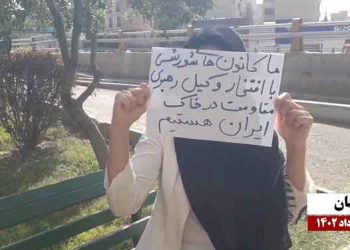 ما کانون‌ها شورشی
با افتخار وکیل رهبری
مقاومت در خاک
ایران هستیم
داد ۱۴۰۲